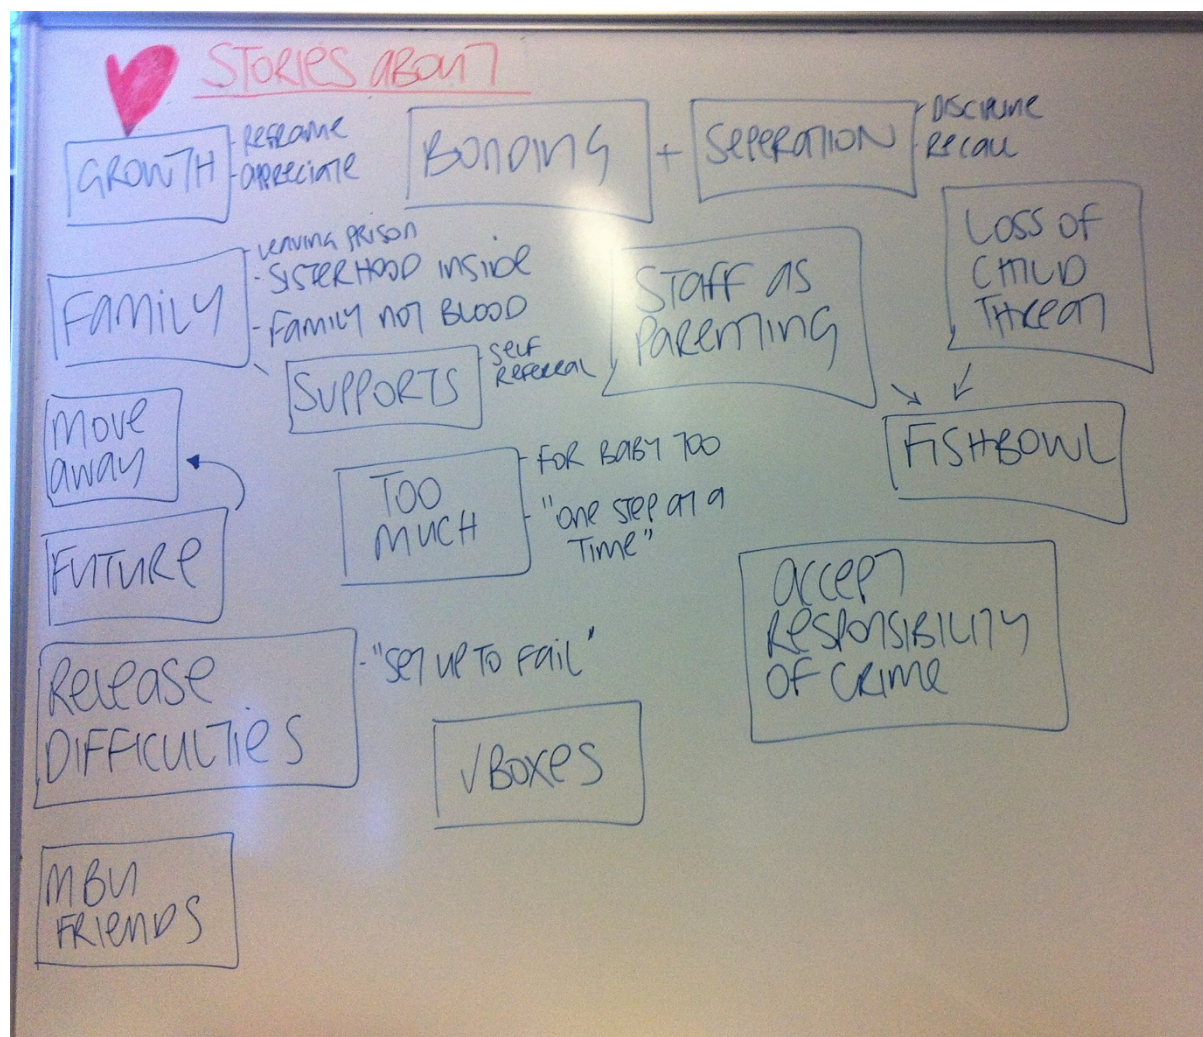 STORIES ABOUT
GROWTH
- REFRAME
- APPRECIATE
BONDING
+
SEPERATION
- DISCIPLINE
- RECALL
FAMILY
- LEAVING PRISON
- SISTERHOOD INSIDE
- FAMILY NOT BLOOD
SUPPORTS
- SELF
REFEREAL
STAFF AS
PARENTING
LOSS OF
CHILD
THREAT
FISHBOWL
MOVE
AWAY
FUTURE
TOO
MUCH
- FOR BABY TOO
- "ONE STEP AT A
TIME"
ACCEPT
RESPONSIBILITY
OF CRIME
RELEASE
DIFFICULTIES
- "SET UP TO FAIL"
√BOXES
MBU
FRIENDS